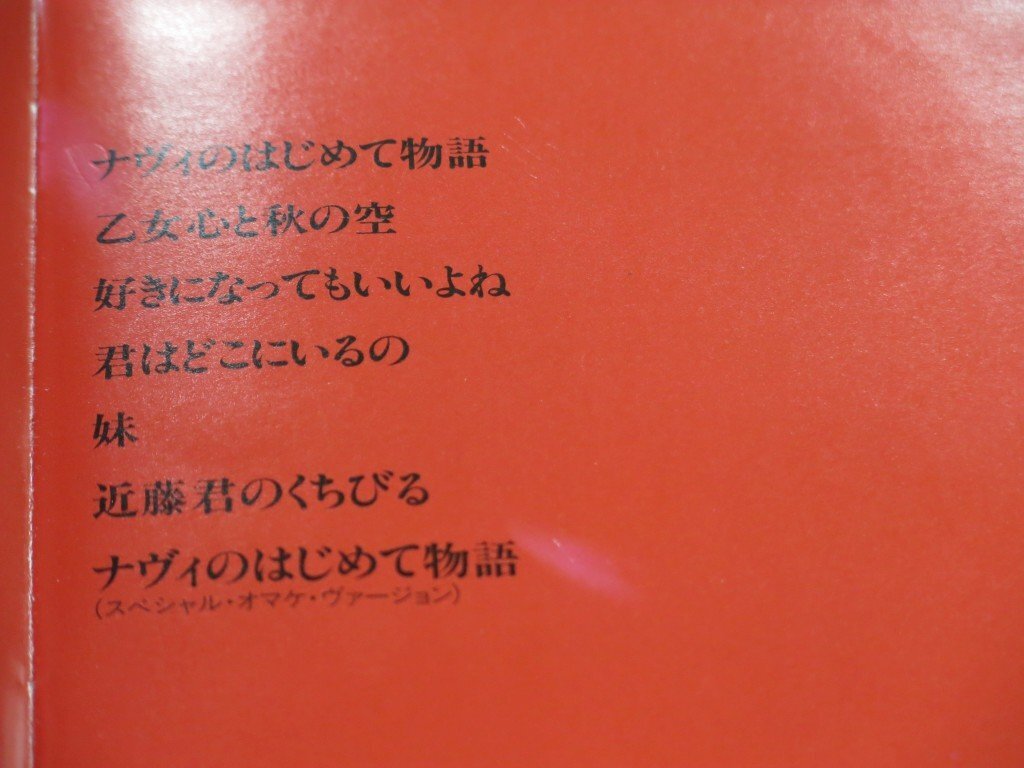 ナヴィのはじめて物語
乙女心と秋の空
好きになってもいいよね
君はどこにいるの
妹
近藤君のくちびる
ナヴィのはじめて物語
(スペシャル・オマケ・ヴァージョン)